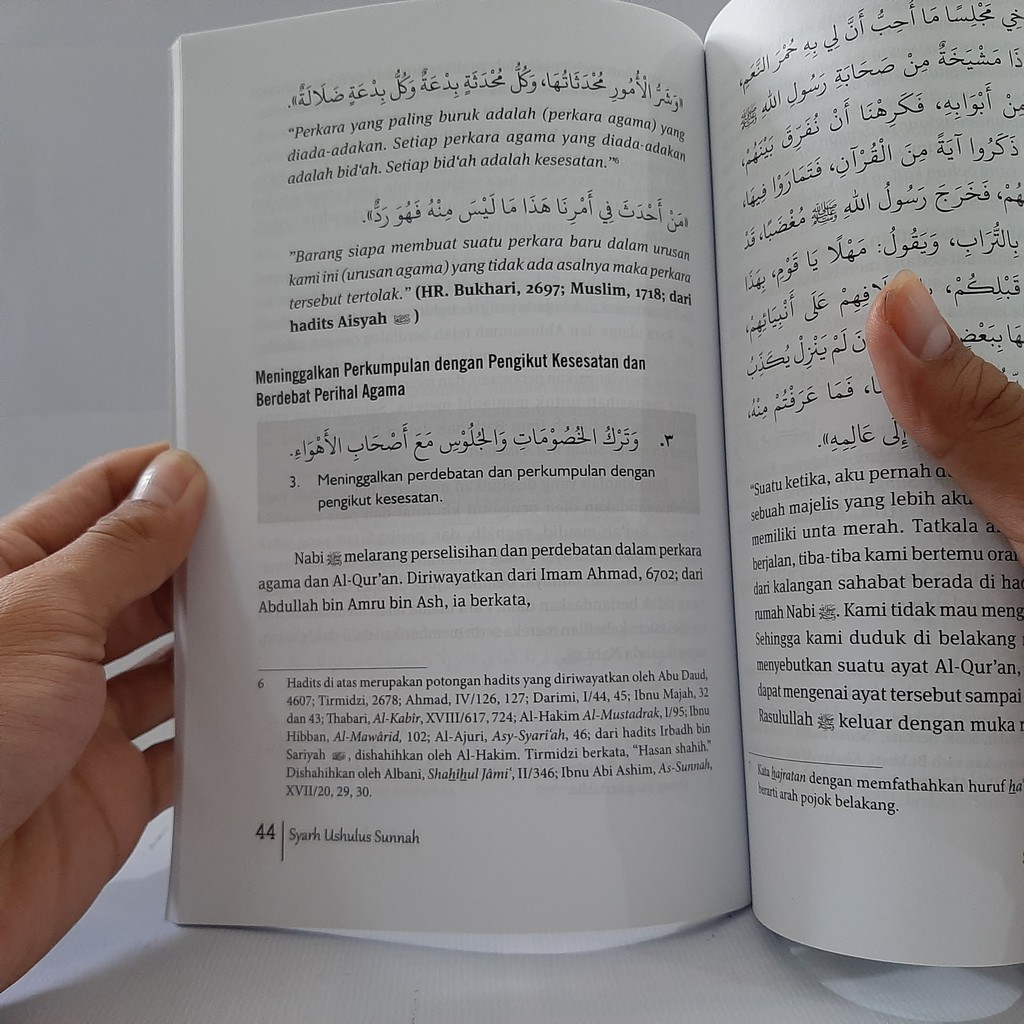 «وَشَرُّ الْأُمُورِ مُحْدَثَاتُهَا، وَكُلُّ مُحْدَثَةٍ بِدْعَةٌ وَكُلُّ بِدْعَةٍ ضَلَالَةٌ».
“Perkara yang paling buruk adalah (perkara agama) yang
diada-adakan. Setiap perkara agama yang diada-adakan
adalah bid‘ah. Setiap bid‘ah adalah kesesatan.”⁶
«مَنْ أَحْدَثَ فِي أَمْرِنَا هَذَا مَا لَيْسَ مِنْهُ فَهُوَ رَدٌّ».
”Barang siapa membuat suatu perkara baru dalam urusan
kami ini (urusan agama) yang tidak ada asalnya maka perkara
tersebut tertolak.” (HR. Bukhari, 2697; Muslim, 1718; dari
hadits Aisyah )
Meninggalkan Perkumpulan dengan Pengikut Kesesatan dan
Berdebat Perihal Agama
٣. وَتَرْكُ الْخُصُوْمَاتِ وَالْجُلُوْسِ مَعَ أَصْحَابِ الْأَهْوَاءِ.
3. Meninggalkan perdebatan dan perkumpulan dengan
pengikut kesesatan.
Nabi ﷺ melarang perselisihan dan perdebatan dalam perkara
agama dan Al-Qur’an. Diriwayatkan dari Imam Ahmad, 6702; dari
Abdullah bin Amru bin Ash, ia berkata,
6 Hadits di atas merupakan potongan hadits yang diriwayatkan oleh Abu Daud,
4607; Tirmidzi, 2678; Ahmad, IV/126, 127; Darimi, I/44, 45; Ibnu Majah, 32
dan 43; Thabari, Al-Kabir, XVIII/617, 724; Al-Hakim Al-Mustadrak, I/95; Ibnu
Hibban, Al-Mawârid, 102; Al-Ajuri, Asy-Syari‘ah, 46; dari hadits Irbadh bin
Sariyah , dishahihkan oleh Al-Hakim. Tirmidzi berkata, “Hasan shahih.”
Dishahihkan oleh Albani, Shahihul Jâmi‘, II/346; Ibnu Abi Ashim, As-Sunnah,
XVII/20, 29, 30.
44 Syarh Ushulus Sunnah
مَجْلِسًا مَا أُحِبُّ أَنَّ لِي بِهِ حُمْرَ النَّعَمِ،
مَشْيَخَةٌ مِنْ صَحَابَةِ رَسُولِ اللهِ ﷺ
مِنْ أَبْوَابِهِ، فَكَرِهْنَا أَنْ نُفَرِّقَ بَيْنَهُمْ،
ذَكَرُوا آيَةً مِنَ الْقُرْآنِ، فَتَمَارَوْا فِيهَا،
فَخَرَجَ رَسُولُ اللهِ ﷺ مُغْضَبًا، قَدْ
بِالتُّرَابِ، وَيَقُولُ: مَهْلًا يَا قَوْمِ، بِهَذَا
قَبْلِكُمْ، عَلَى أَنْبِيَائِهِمْ،
لَمْ يَنْزِلْ يُكَذِّبُ
فَمَا عَرَفْتُمْ مِنْهُ،
إِلَى عَالِمِهِ».
“Suatu ketika, aku pernah
sebuah majelis yang lebih aku
memiliki unta merah. Tatkala
berjalan, tiba-tiba kami bertemu
dari kalangan sahabat berada di
rumah Nabi ﷺ. Kami tidak mau
Sehingga kami duduk di belakang
menyebutkan suatu ayat Al-Qur’an,
dapat mengenai ayat tersebut sampai
Rasulullah ﷺ keluar dengan muka
Kata hajratan dengan memfathahkan huruf
berarti arah pojok belakang.